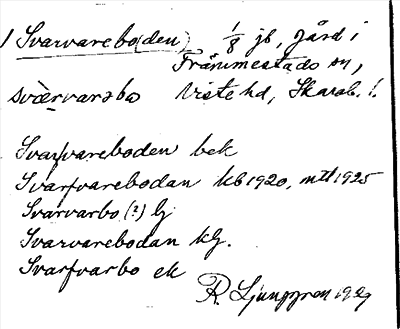 1 Svarvarebo(den) 1/8 jb, gård i
Främmestads sn,
svàrvarəbo Viste hd, Skarab. l.
Svarfvareboden bek
Svarfvarebodan kb 1920, mtl 1925
Svarvarbo (?) lj
Svarvarebodan kg.
Svarfvarbo ek
R. Ljunggren 1929